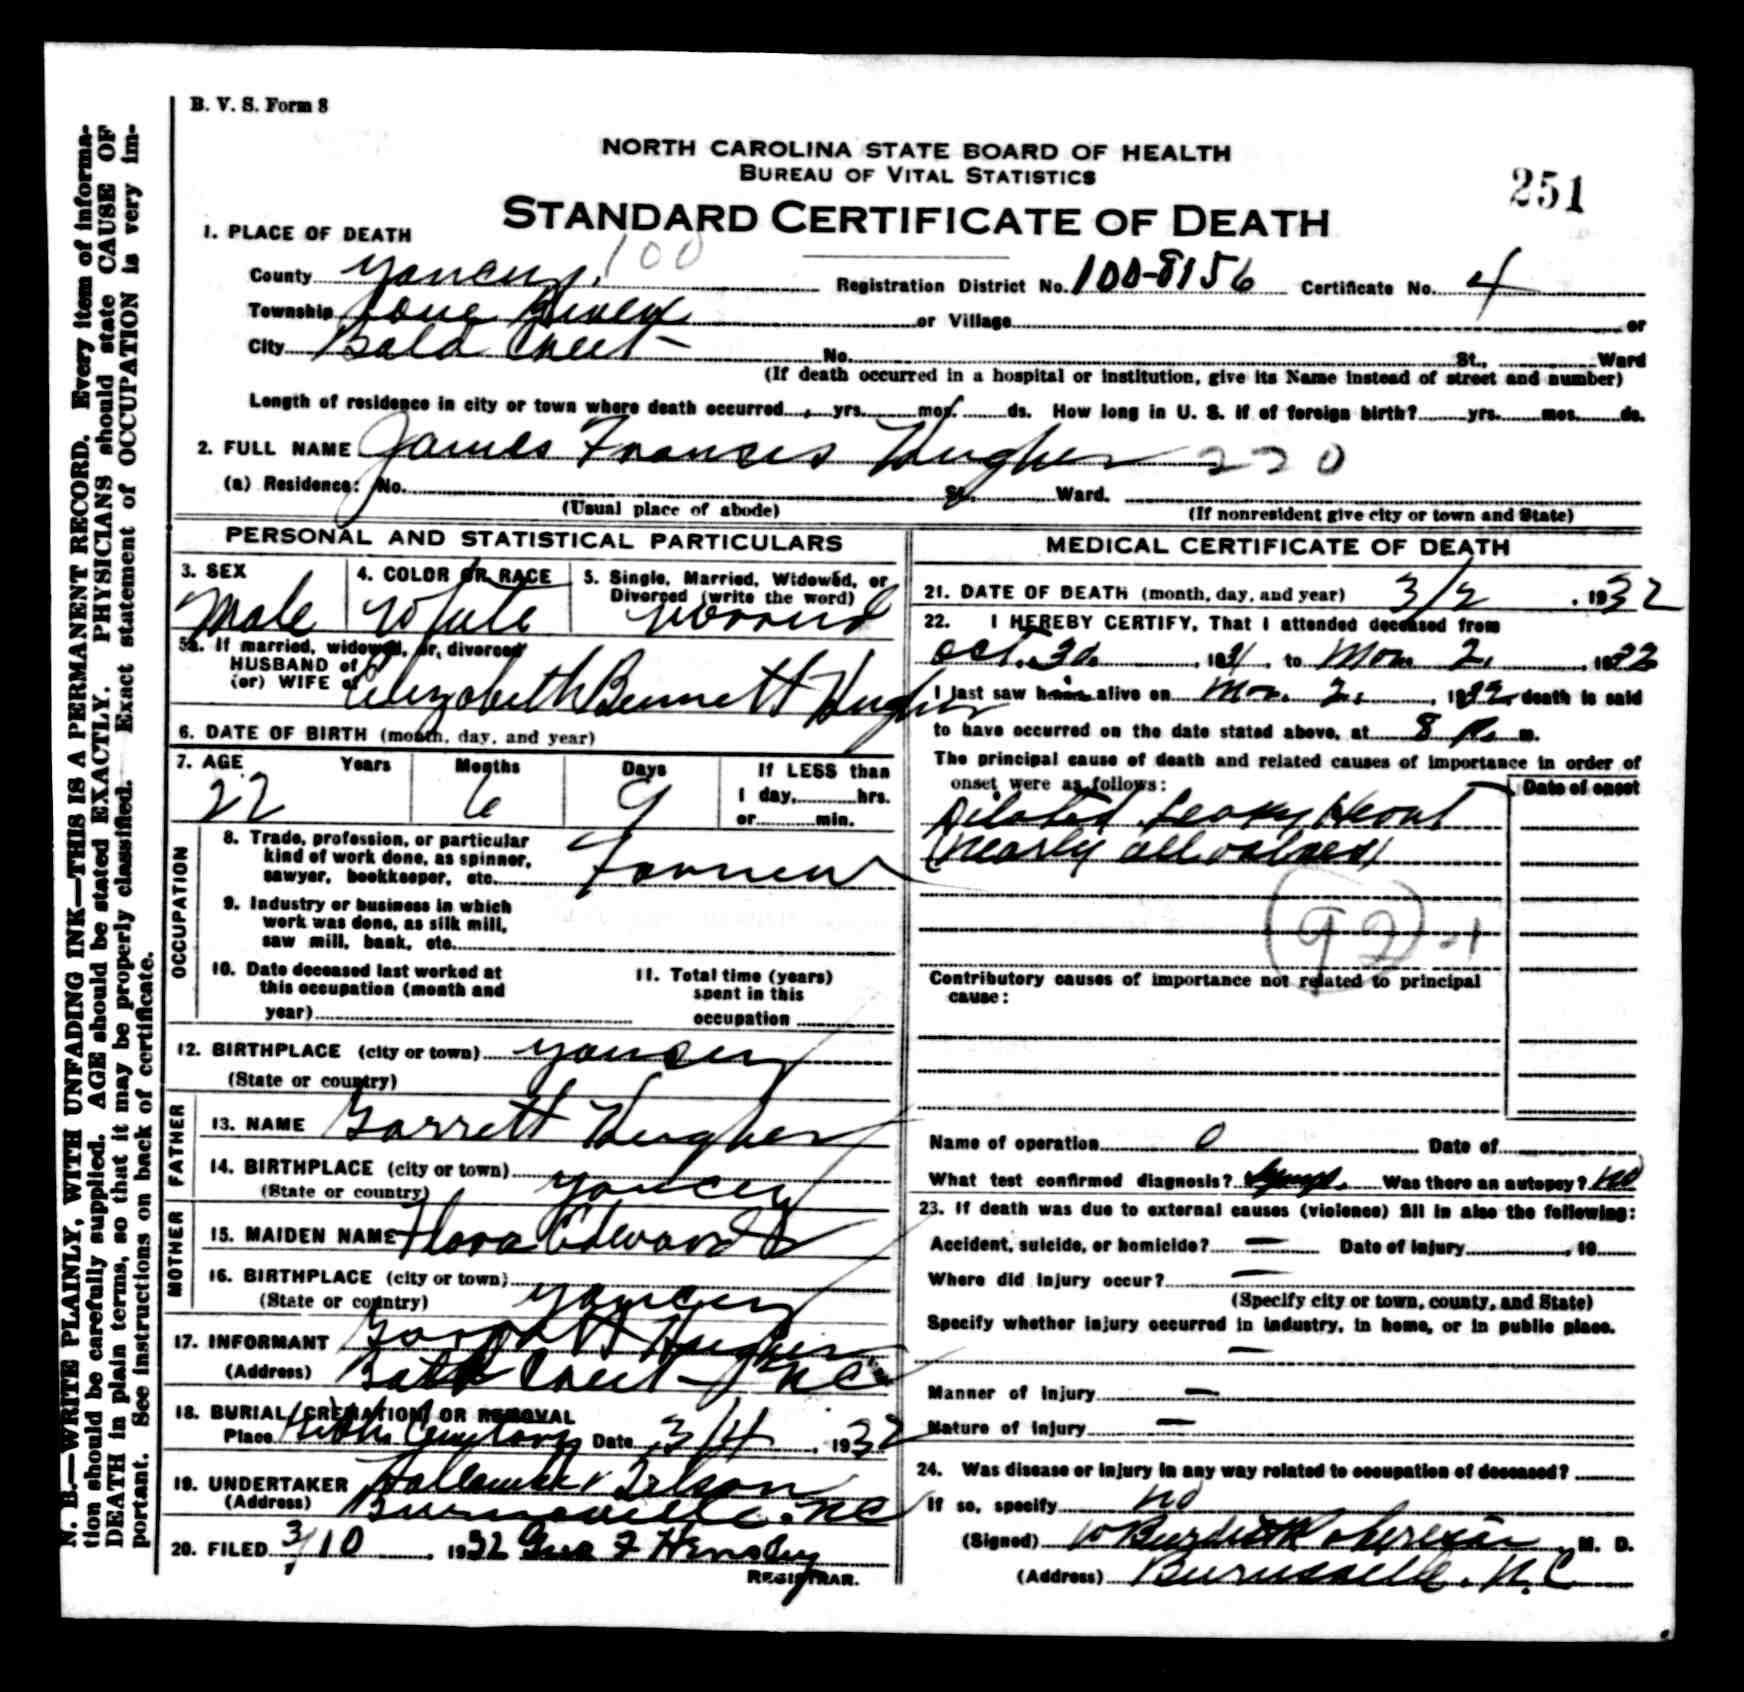 B. V. S. Form 8
NORTH CAROLINA STATE BOARD OF HEALTH
BUREAU OF VITAL STATISTICS
251
STANDARD CERTIFICATE OF DEATH
1. PLACE OF DEATH
100
County Yancey. Registration District No. 100-8156 Certificate No. 4
Township or Village or
City Bald Creek No. St., Ward
(If death occurred in a hospital or institution, give its Name instead of street and number)
Length of residence in city or town where death occurred yrs. mos. ds. How long in U. S. if of foreign birth? yrs. mos. ds.
2. FULL NAME James Frances Hughes 220
(a) Residence: No. St. Ward.
(Usual place of abode) (If nonresident give city or town and State)
PERSONAL AND STATISTICAL PARTICULARS
3. SEX 4. COLOR OR RACE 5. Single, Married, Widowed, or
Divorced (write the word)
Male White Married
5a. If married, widowed, or, divorced
HUSBAND of
(or) WIFE of Elizabeth Bennett Hughes
6. DATE OF BIRTH (month, day, and year)
7. AGE Years Months Days If LESS than
22 6 9 1 day, hrs.
or min.
OCCUPATION
8. Trade, profession, or particular
kind of work done, as spinner,
sawyer, bookkeeper, etc. Farmer
9. Industry or business in which
work was done, as silk mill,
saw mill, bank, etc.
10. Date deceased last worked at
this occupation (month and
year)
11. Total time (years)
spent in this
occupation
12. BIRTHPLACE (city or town) Yancey
(State or country)
FATHER
13. NAME Garrett Hughes
14. BIRTHPLACE (city or town)
(State or country) Yancey
MOTHER
15. MAIDEN NAME Flora Edwards
16. BIRTHPLACE (city or town)
(State or country) Yancey
17. INFORMANT Garrett Hughes
(Address) Bald Creek NC
18. BURIAL, CREMATION, OR REMOVAL
Place Cemetary Date 3/4, 1932
19. UNDERTAKER
(Address) Burnsville. NC
20. FILED 3/10, 1932 Geo F Hensley
REGISTRAR.
MEDICAL CERTIFICATE OF DEATH
21. DATE OF DEATH (month, day, and year) 3/2, 1932
22. I HEREBY CERTIFY, That I attended deceased from
Oct. 30, 1931, to Mar. 2, 1932
I last saw him alive on Mar. 2, 1932 death is said
to have occurred on the date stated above, at 8 P. m.
The principal cause of death and related causes of importance in order of
onset were as follows: Date of onset
Dilated Leaky Heart
(Nearly all valves)
92-1
Contributory causes of importance not related to principal
cause:
Name of operation 0 Date of
What test confirmed diagnosis? Symp. Was there an autopsy? No
23. If death was due to external causes (violence) fill in also the following:
Accident, suicide, or homicide? — Date of injury, 19
Where did injury occur? —
(Specify city or town, county, and State)
Specify whether injury occurred in industry, in home, or in public place.
—
Manner of injury —
Nature of injury —
24. Was disease or injury in any way related to occupation of deceased?
If so, specify No
(Signed) M. D.
(Address) Burnsville, N.C
N. B.—WRITE PLAINLY, WITH UNFADING INK—THIS IS A PERMANENT RECORD. Every item of information
should be carefully supplied. AGE should be stated EXACTLY. PHYSICIANS should state CAUSE OF
DEATH in plain terms, so that it may be properly classified. Exact statement of OCCUPATION is very important.
See instructions on back of certificate.